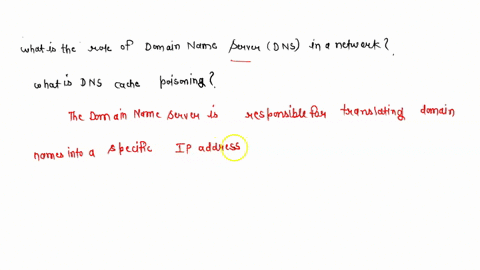 what is the role of Domain Name Server (DNS) in a network?
what is DNS cache poisoning?
The Domain Name Server is responsible for translating domain
names into a specific IP address